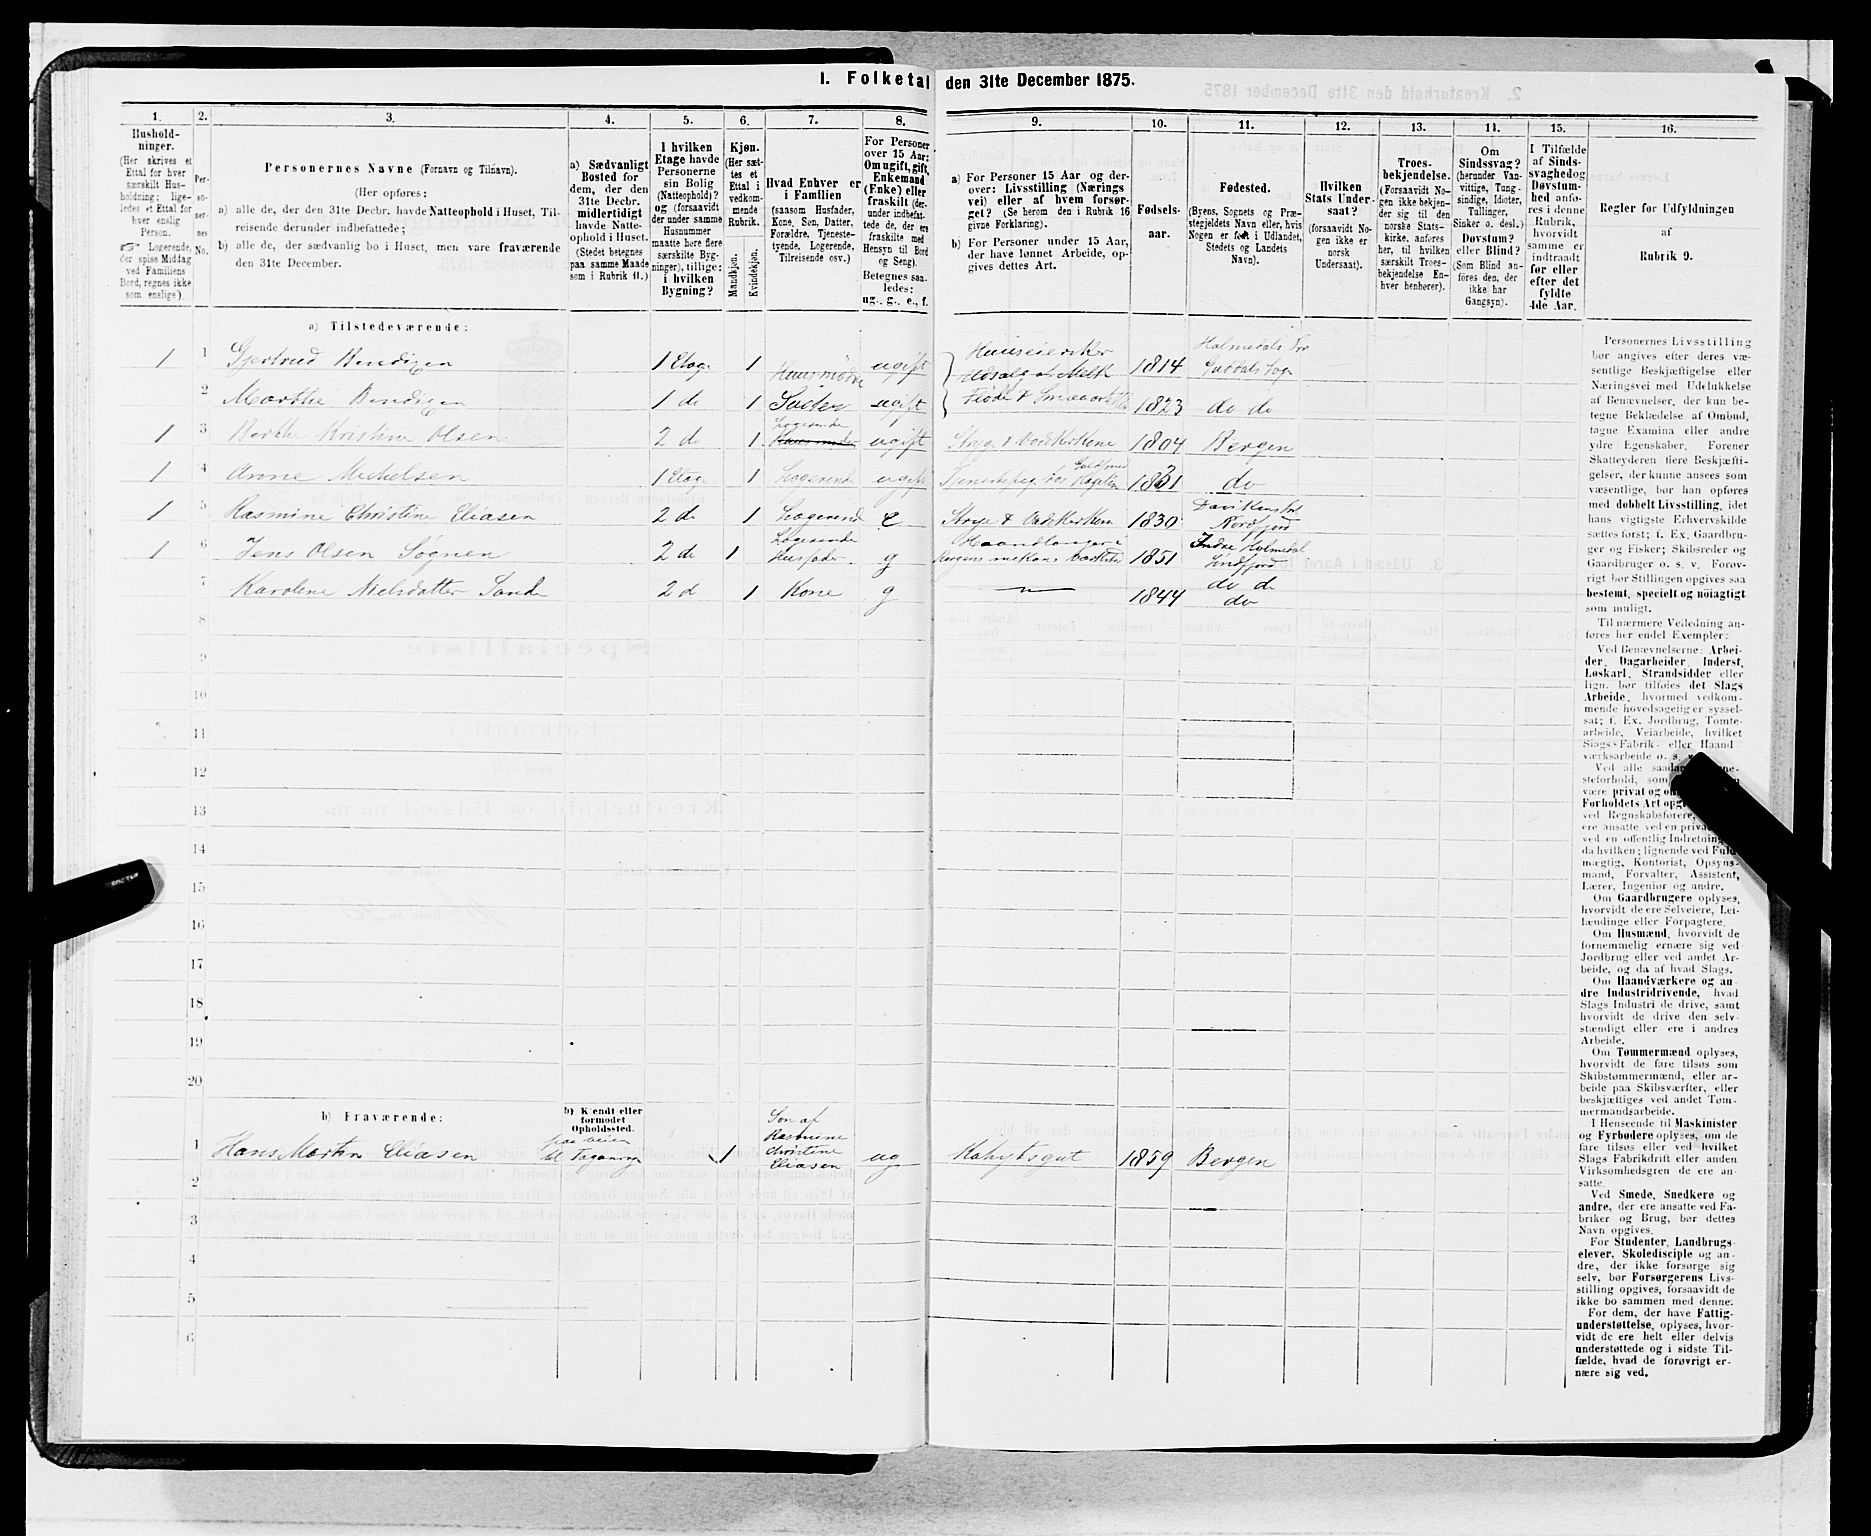 1. Folketal den 31te December 1875.
1. 2. 3. 4. 5. 6. 7. 8. 9. 10. 11. 12. 13. 14. 15. 16.
Hushold-
ninger.
(Her skrives et
Ettal for hver
særskilt Hus-
holdning; lige-
ledes et Ettal for
hver enslig
Person.
☞ Logerende,
der spise Middag
ved Familiens
Bord, regnes ikke
som enslige).
Per-
so-
ner-
nes
No.
Personernes Navne (Fornavn og Tilnavn).
(Her opføres:
a) alle de, der den 31te Decbr. havde Natteophold i Huset, Til-
reisende derunder indbefattede;
b) alle de, der sædvanlig bo i Huset, men vare fraværende
den 31te December.
a) Sædvanligt
Bosted for
dem, der den
31te Decbr.
midlertidigt
havde Natte-
ophold i Huset.
(Stedet betegnes
paa samme Maade
som i Rubrik 11.)
I hvilken
Etage havde
Personerne
sin Bolig
(Natteophold)?
og (forsaavidt
der under samme
Husnummer
maatte høre flere
særskilte Byg-
ninger), tillige:
i hvilken
Bygning?
Kjøn.
(Her sæt-
tes et
Ettal i
vedkom-
mende
Rubrik.
Mandkjøn.
Kvindekjøn.
Hvad Enhver er
i Familien
(saasom Husfader,
Kone, Søn, Datter,
Forældre, Tjeneste-
tyende, Logerende,
Tilreisende osv.)
For Personer
over 15 Aar:
Om ugift, gift,
Enkemand
(Enke) eller
fraskilt (der-
under indbefat-
tede de, der ere
fraskilte med
Hensyn til Bord
og Seng).
Betegnes saa-
ledes:
ug., g., e., f.
a) For Personer 15 Aar og der-
over: Livsstilling (Nærings
vei) eller af hvem forsør-
get? (Se herom den i Rubrik 16
givne Forklaring).
b) For Personer under 15 Aar,
der have lønnet Arbeide, op-
gives dettes Art.
Fødsels-
aar.
Fødested.
(Byens, Sognets og Præ-
stegjeldets Navn eller, hvis
Nogen er født i Udlandet,
Stedets og Landets
Navn).
Hvilken
Stats Under-
saat?
(forsaavidt No-
gen ikke er
norsk
Undersaat).
Troes-
bekjendelse.
(Forsaavidt No-
gen ikke bekjen-
der sig til den
norske Stats-
kirke, anføres
her, til hvilken
særskilt Troes-
bekjendelse En-
hver henhører).
Om
Sindssvag?
(herunder Van-
vittige, Tung-
sindige, Idioter,
Tullinger,
Sinker o. desl.)
Døvstum?
eller Blind?
(Som Blind an-
føres den, der
ikke har
Gangsyn).
I Tilfælde
af Sinds-
svaghed og
Døvstum-
hed anfø-
res i denne
Rubrik,
hvorvidt
samme er
indtraadt
før eller
efter det
fyldte
4de Aar.
Regler for Udfyldningen
af
Rubrik 9.
a) Tilstedeværende:
1 1 Gjertrud Bendixen 1 Etage 1 Huusmoder ugift Huuseierske Udsalg af Melk 1814 Holmedals Guddals Sogn
2 Marthe Bendixen 1 do 1 Søster ugift Fløde & 1823 do do
1 3 Berthe Kristine Olsen 2 do 1 Logerende ugift 1804 Bergen
1 4 Anne Michelsen 1 Etage 1 Logerende ugift 1831 do
1 5 Rasmine Christine Eliasen 2 do 1 Logerende e 1830 Nordfjord
1 6 Jens Olsen Søgnen 2 do 1 Logerende Husfader g 1851 Indre Holmedal Søndfjord
7 Karoline Nielsdatter Sande 2 d 1 Kone g 1844 do do do
8
9
10
11
12
13
14
15
16
17
18
19
20
b) Fraværende:
b) Kjendt eller
formodet
Opholdssted.
1 Hans Martin Eliasen paa veien til Taganrog 1 Søn af Rasmine Christine Eliasen ug Kahytsgut 1859 Bergen
2
3
4
5
6
Personernes Livsstilling
bør angives efter deres væ-
sentlige Beskjæftigelse eller
Næringsvei med Udelukkelse
af Benævnelser, der kun be-
tegne Beklædelse af Ombud,
tagne Examina eller andre
ydre Egenskaber. Forener
Skatteyderen flere Beskjæfti-
gelser, der kunne ansees som
væsentlige, bør han opføres
med dobbelt Livsstilling, idet
hans vigtigste Erhvervskilde
sættes først; f. Ex. Gaardbru-
ger og Fisker; Skibsreder og
Gaardbruger o. s. v. Forøv-
rigt bør Stillingen opgives saa
bestemt, specielt og nöiagtigt
som muligt.
Til nærmere Veiledning an-
føres her endel Exempler:
Ved Benævnelserne: Arbei-
der, Dagarbeider, Inderst,
Løskarl, Strandsidder eller
lign. bør tilføies det Slags
Arbeide, hvormed vedkom-
mende hovedsagelig er syssel-
sat; f. Ex. Jordbrug, Tomte-
arbeide, Veiarbeide, hvilket
Slags Fabrik- eller Haand
værksarbeide o. s.
Ved alle
steforhold, som
være privat og
Forholdets Art
ved Regnskabsførere,
ere ansatte ved en
ved en offentlig Indretning
da hvilken; lignende ved Fuld
mægtig, Kontorist, Opsyns-
mand, Forvalter, Assistent,
Lærer, Ingeniør og andre.
Om Gaardbrugere oplyses,
hvorvidt de ere Selveiere, Lei-
lændinge eller Forpagtere.
Om Husmænd, hvorvidt de
fornemmelig ernære sig ved
Jordbrug eller ved andet Ar-
beide, og da af hvad Slags.
Om Haandværkere og an
dre Industridrivende, hvad
Slags Industri de drive, samt
hvorvidt de drive den selv-
stændigt eller ere i andres
Arbeide.
Om Tømmermænd oplyses,
hvorvidt de fare tilsøs som
Skibstømmermænd, eller ar-
beide paa Skibsværfter, eller
beskjæftiges ved andet Tøm-
mermandsarbeide.
I Henseende til Maskinister
og Fyrbødere oplyses, om de
fare tilsøs eller ved hvilket
Slags Fabrikdrift eller anden
Virksomhedsgren de ere an-
satte.
Ved Smede, Snedkere og
andre, der ere ansatte ved Fa-
briker og Brug, bør dettes
Navn opgives.
For Studenter, Landbrugs-
elever, Skoledisciple og an-
dre, der ikke forsørge sig
selv, bør Forsørgerens Livs-
stilling opgives, forsaavidt de
ikke bo sammen med denne.
For dem, der have Fattig-
understøttelse, oplyses, hvor-
vidt de ere helt eller delvis
understøttede og i sidste Til-
fælde, hvad de forøvrigt er-
nære sig ved.